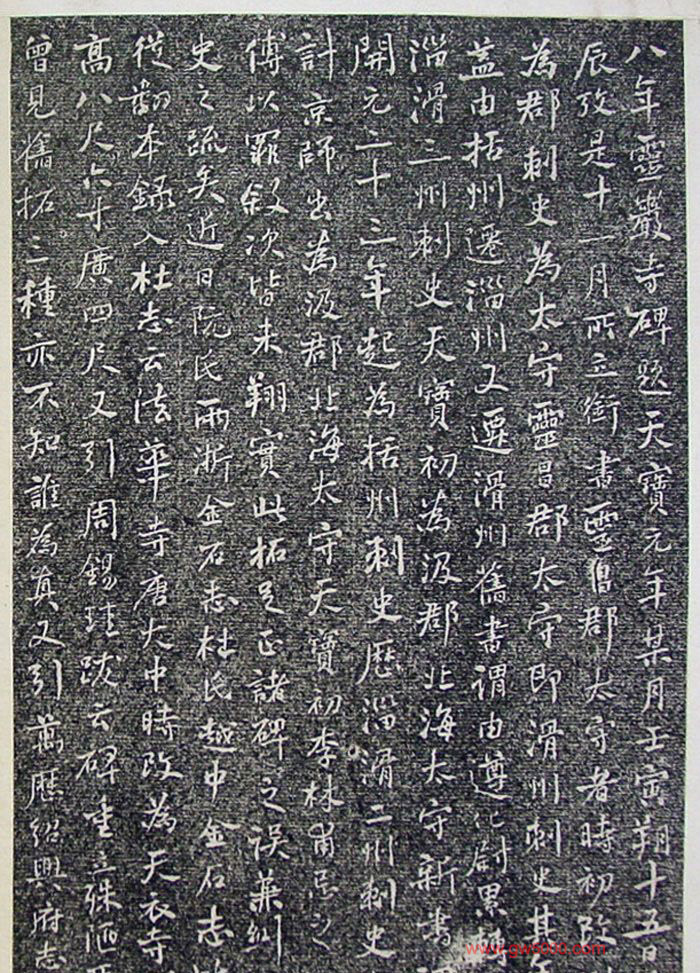 八年靈巖寺碑題天寶元年某月壬寅朔十五日
辰攷是十一月所立銜書靈昌郡太守者時初改
為郡刺史為太守靈昌郡太守即滑州刺史其
蓋由括州遷淄州又遷滑州舊書謂由遵化尉累
淄滑三州刺史天寶初為汲郡北海太守新書
開元二十三年起為括州刺史歷淄滑二州刺史
計京師出為汲郡北海太守天寶初李林甫忌之
傅以罪敘次皆未翔實此拓足正諸碑之誤兼糾
史之疏矣近日阮氏兩浙金石志杜氏越中金石志
從翻本錄入杜志云法華寺唐大中時改為天衣寺
高八尺六寸廣四尺又引周錫珪跋云碑重立殊陋
曾見舊拓三種亦不知誰為真又引萬歷紹興府志